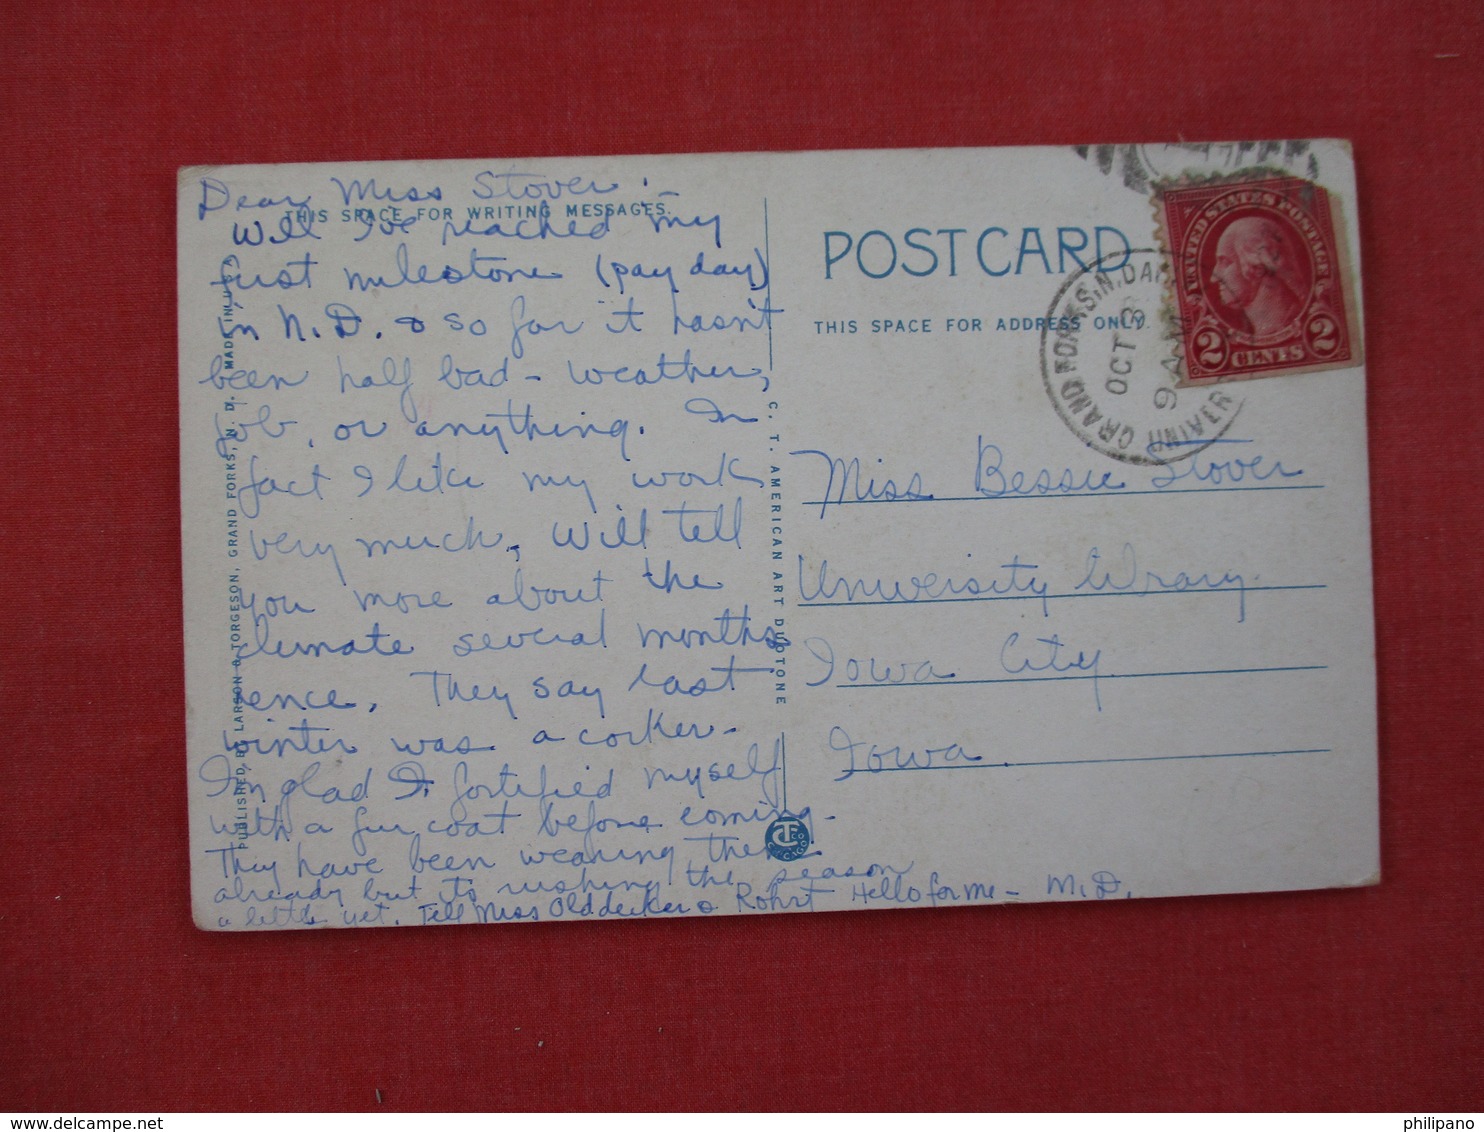 Dear Miss Stover:-
THIS SPACE FOR WRITING MESSAGES.
Well I've reached my
first milestone (pay day)
in N.D. & so far it hasn't
been half bad - weather,
job, or anything. In
fact I like my work
very much. Will tell
you more about the
climate several months
hence. They say last
winter was a corker-
I'm glad I fortified myself
with a fur coat before coming.
They have been wearing them
already but its rushing the season
a little yet. Tell Miss Olddecker & Rohrt Hello for me - M.D.
PUBLISHED BY LARSON & TORGESON, GRAND FORKS, N. D. MADE IN U.S.A.
C. T. AMERICAN ART DUOTONE
CT CO
CHICAGO
POST CARD
THIS SPACE FOR ADDRESS ONLY.
GRAND FORKS, N. DAK.
OCT 3
9 AM
UNIVER
UNITED STATES POSTAGE
2 CENTS 2
Miss Bessie Stover
University Library
Iowa City
Iowa.
delcampe.net
philipano